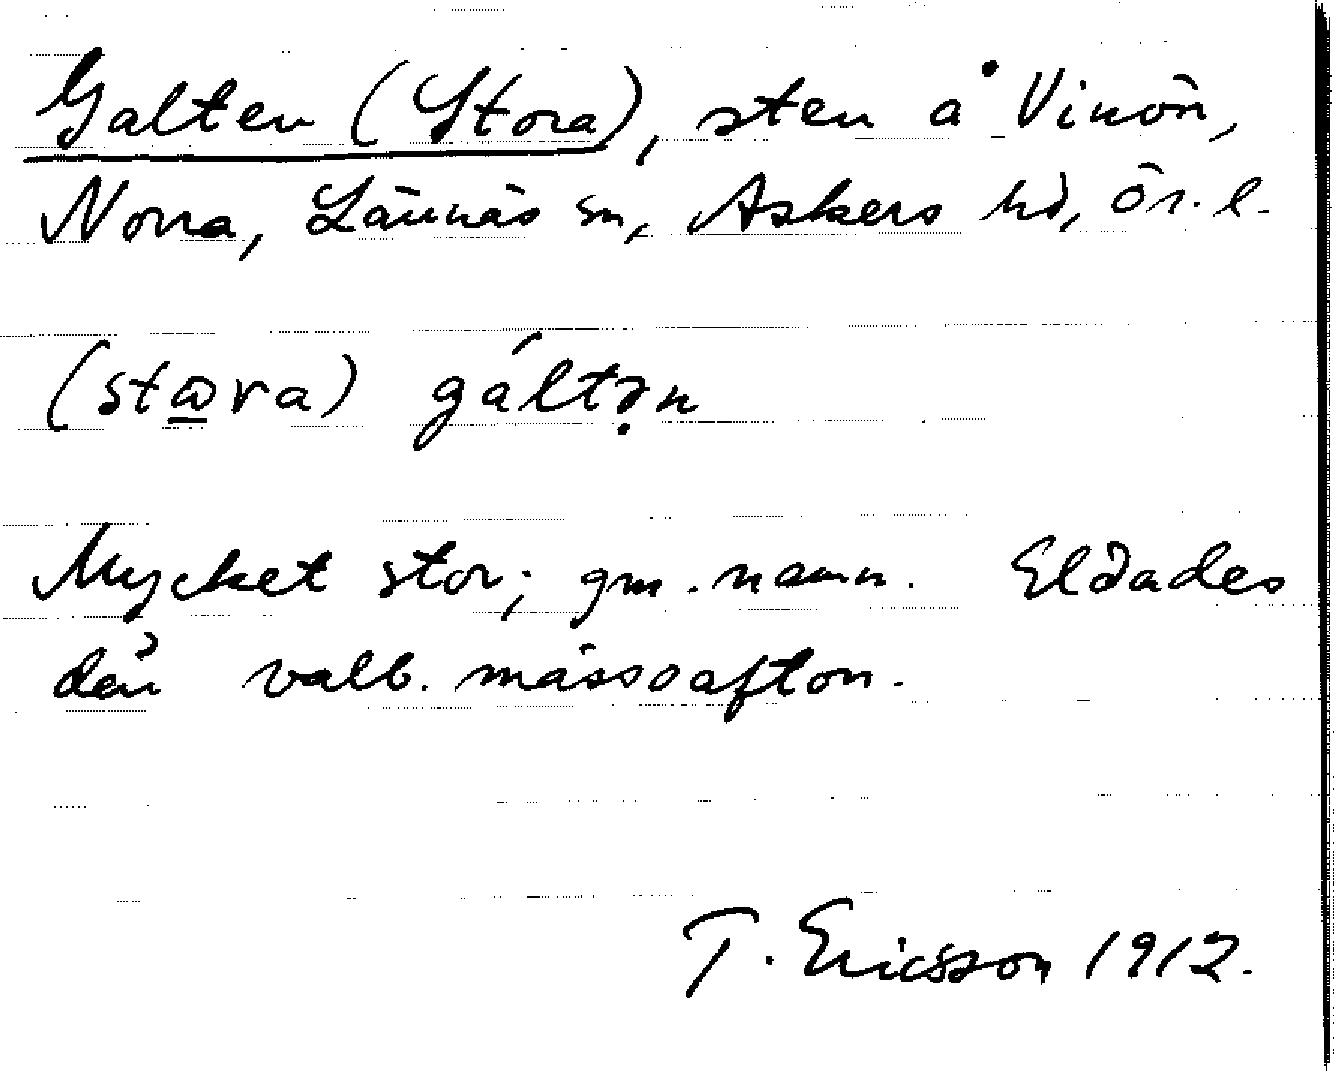 Galten (Stora), sten å Vinön,
Norra, Lännäs sn, Askers hd, Ör. l.
(stωra) gáltə̣n
Mycket stor; gm. namn. Eldades
där valb. mässoafton.
T. Ericsson 1912.